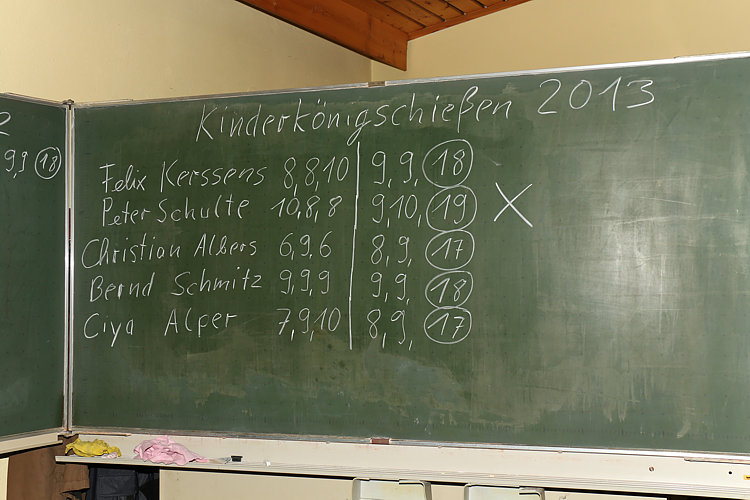 2
9,9 18
Kinderkönigschießen 2013
Felix Kerssens 8,8,10 9,9, 18
Peter Schulte 10,8,8 9,10, 19 X
Christian Albers 6,9,6 8,9, 17
Bernd Schmitz 9,9,9 9,9, 18
Ciya Alper 7,9,10 8,9, 17